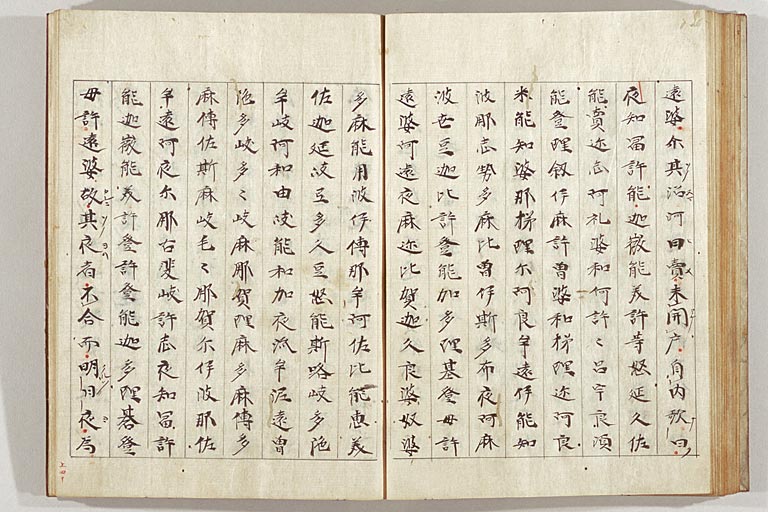 遠婆尓其沼河日賣未開户自内歌曰
夜知冨許能迦微能美許等怒延久佐
能賣迩志阿礼婆和何許々呂宇良須
能登理釼伊麻許曽婆和梯理迩阿良
米能知婆那梯理尓阿良牟遠伊能知
波那志勢多麻比曽伊斯多布夜阿麻
波世豆迦比許登能加多理碁登母許
遠婆阿遠夜麻迩比賀迦久良婆奴婆
多麻能用波伊傳那牟阿佐比能恵美
佐迦延岐豆多久豆怒能斯路岐多陀
牟岐阿和由岐能和加夜流牟泥遠曽
陀多岐多々岐麻那賀理麻多麻傳多
麻傳佐斯麻岐毛々那賀尓伊波那佐
牟遠阿夜尓那古斐岐許志夜知冨許
能迦微能美許登許登能迦多理碁登
母許遠婆故其夜者不合而明日夜為